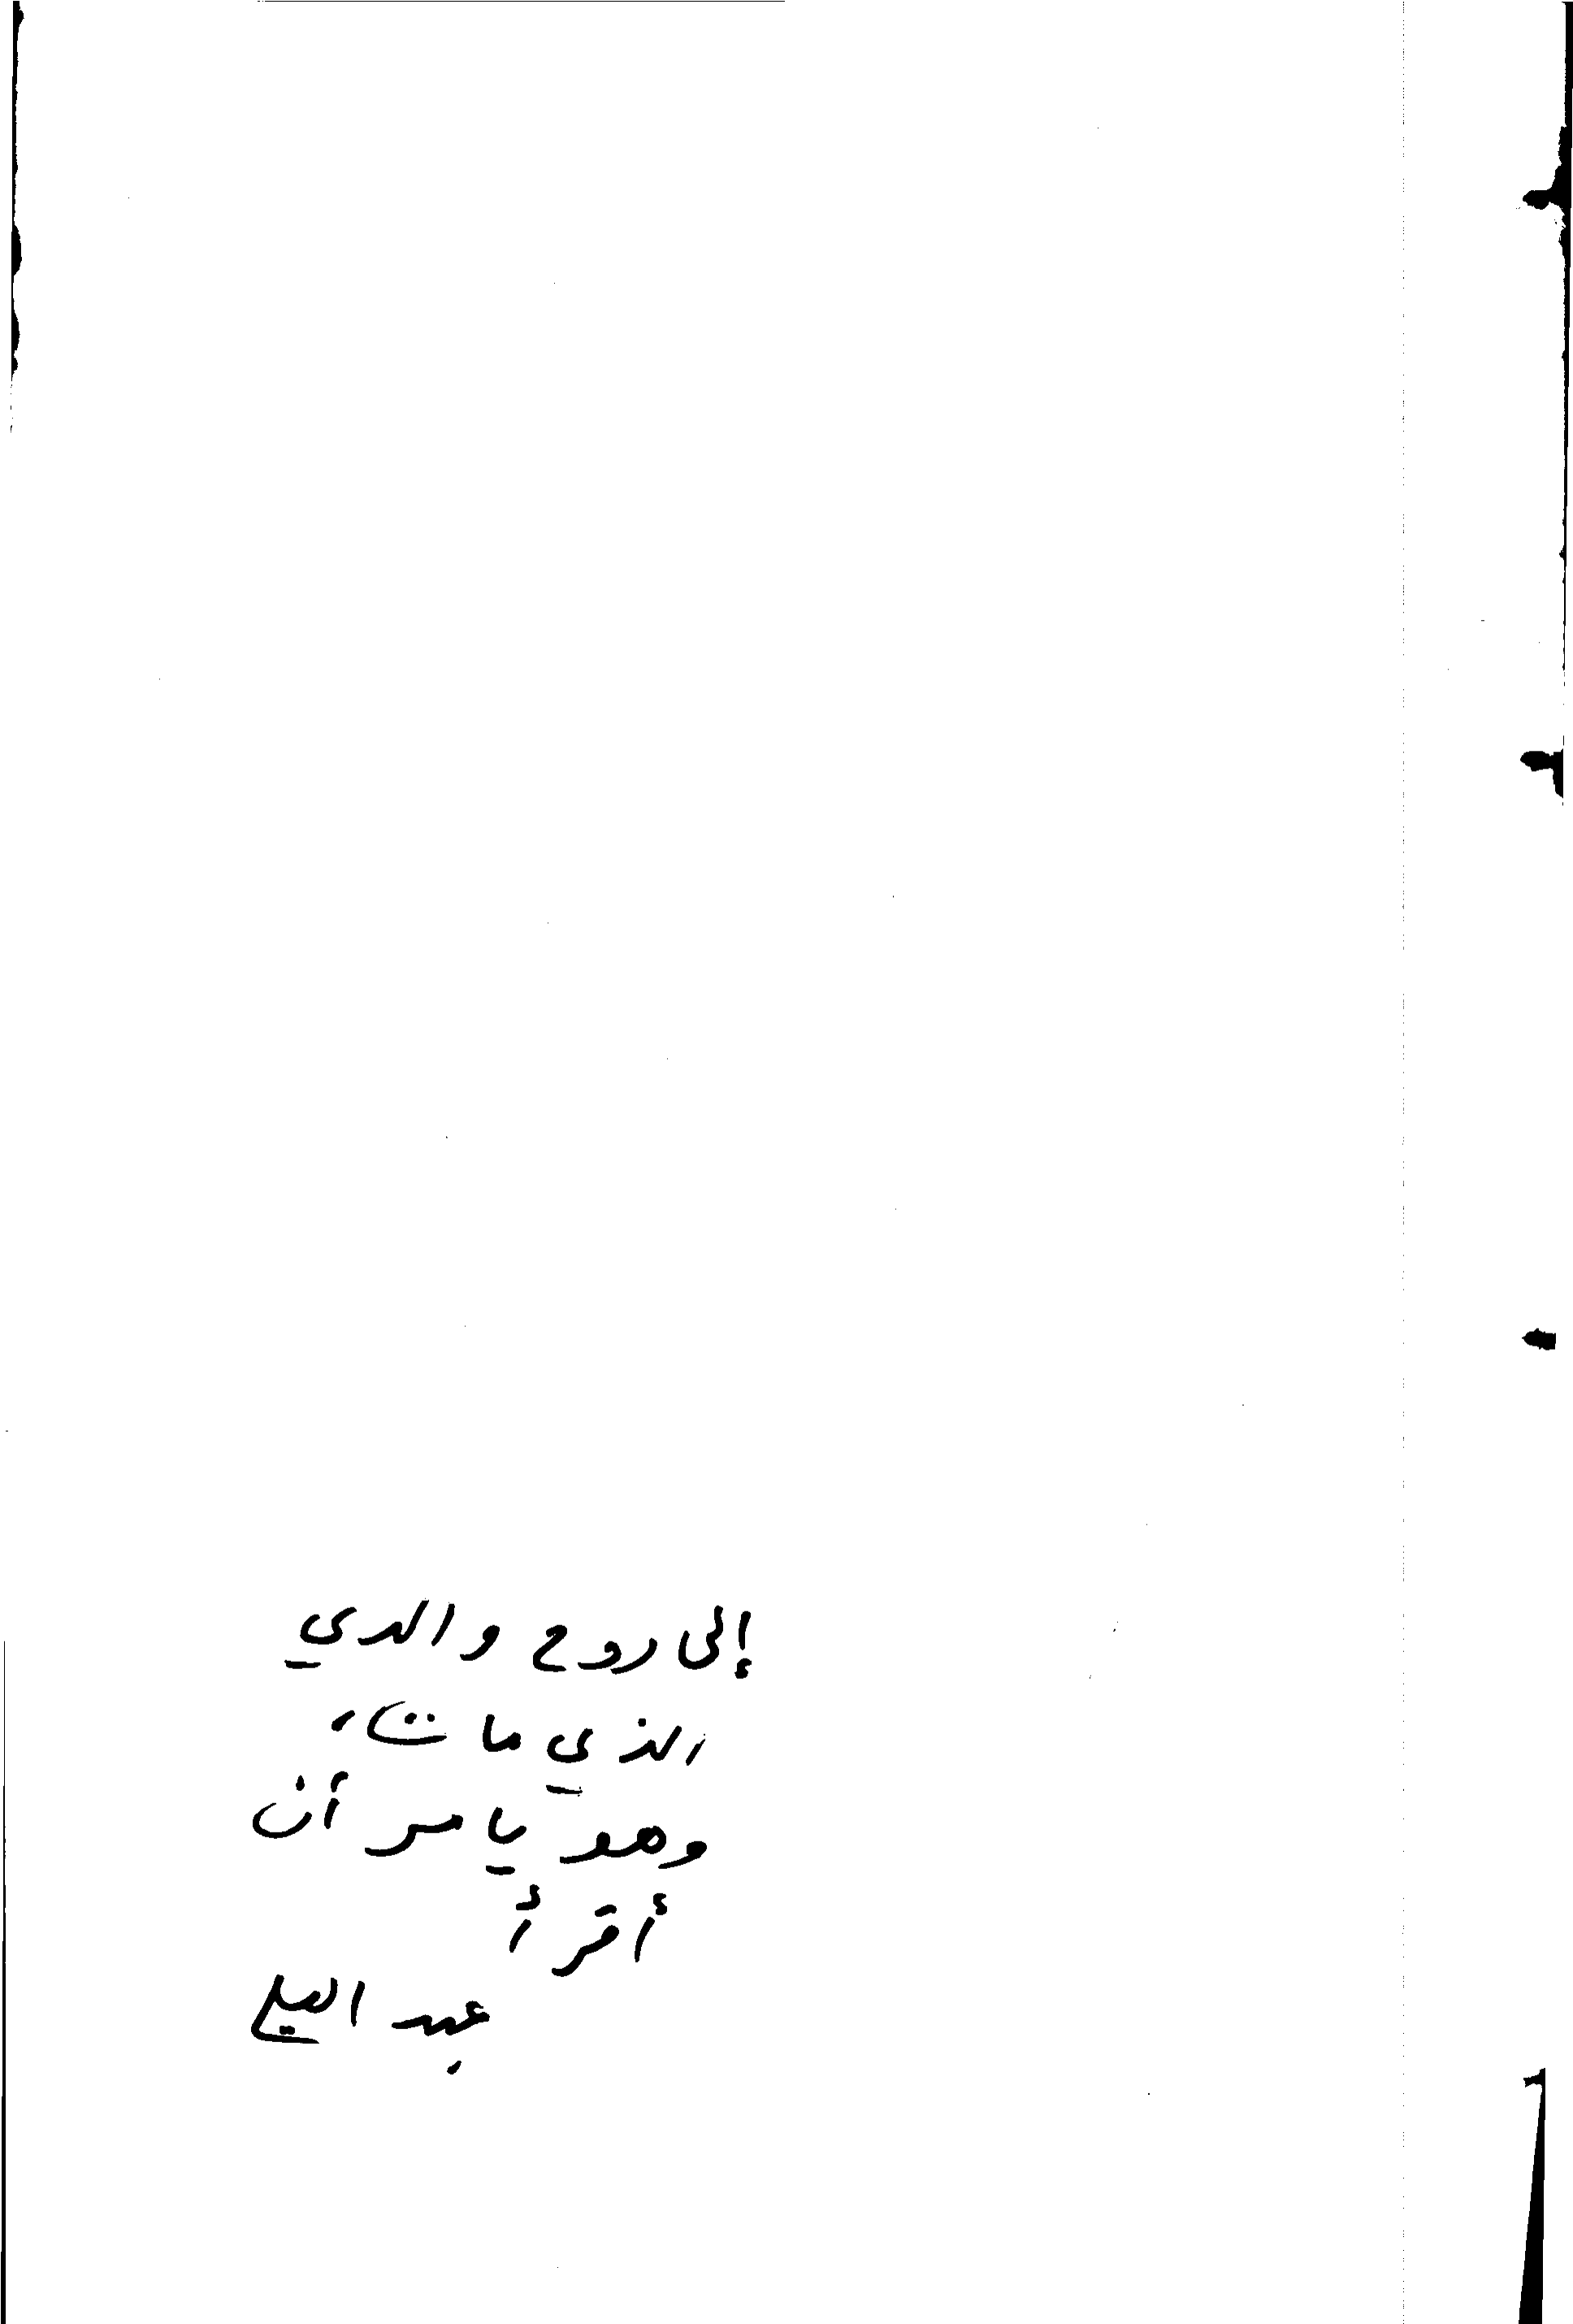 إلى روح والدي
الذي مات،
وهو يأمر أن
أقرأ
عبد العلي